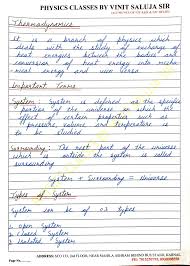 PHYSICS CLASSES BY VINIT SALUJA SIR
Thermodynamics
It is a branch of physics which
deals with the study of exchange of
heat energy between bodies and
conversion of heat energy into mech
energy and vice-versa
Important Terms
System: System is defined as the specific
portion of the universe in which the
effect of certain properties such as
pressure, volume, temperature etc is
to be studied
Surrounding: The rest part of the universe
which is outside the system is called
surrounding
System + Surrounding = Universe
Types of System
System can be of 03 types
1. Open System
2. Closed System
3. Isolated System
Page No.